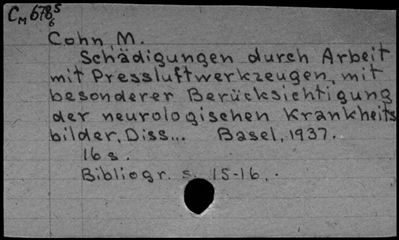 Cм 676⁵₆
Cohn, M.
Schädigungen durch Arbeit
mit Pressluftwerkzeugen, mit
besonderer Berücksichtigung
der neurologischen Krankheits
bilder, Diss... Basel, 1937.
16 s.
Bibliogr. s. 15-16.